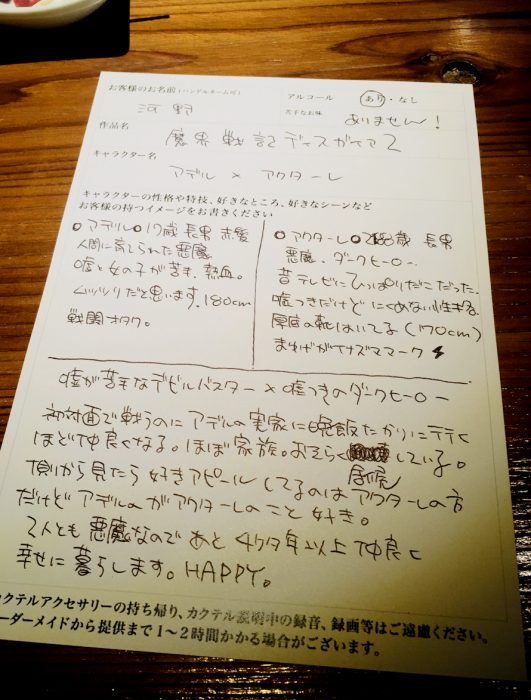 お客様のお名前(ハンドルネーム可)
河野
アルコール
あり・なし
苦手なお味
ありません!
作品名
魔界戦記ディスガイア2
キャラクター名
アデル × アクターレ
キャラクターの性格や特技、好きなところ、好きなシーンなど
お客様の持つイメージをお書きください
○アデル○17歳 長男 赤髪
人間に育てられた悪魔
嘘と女の子が苦手、熱血。
ムッツリだと思います。180cm
戦闘オタク。
○アクターレ○2188歳 長男
悪魔、ダークヒーロー
昔テレビにひっぱりだこだった。
嘘つきだけどにくめない性格。
厚底の靴はいてる(170cm)
まゆげがイナズママーク
嘘が苦手なデビルバスター×嘘つきのダークヒーロー
初対面で戦うのにアデルの実家に晩飯たかりに行く
ほど仲良くなる。ほぼ家族。おそらく居候している。
傍から見たら好きアピールしてるのはアクターレの方
だけどアデルのがアクターレのこと好き。
2人とも悪魔なのであと4ケタ年以上仲良く
幸せに暮らします。HAPPY。
カクテルアクセサリーの持ち帰り、カクテル説明中の録音、録画等はご遠慮ください。
ーダーメイドから提供まで1~2時間かかる場合がございます。